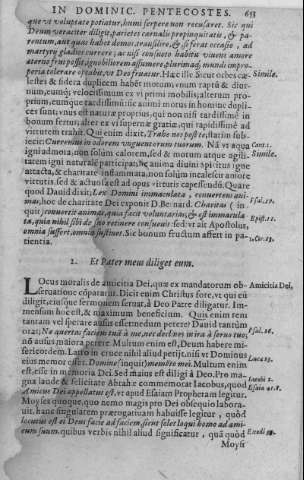 IN DOMINIC. PENTECOSTES. 653
que vt voluptate potiatur, huini serpere non recusaret. Sic qui
Deum veraciter diligit, parietes carnalis propinquitatis, & pa-
rentum, aut quas habet domos, transilire, & si ferat occasio, ad
martyrij gladios currere; ac visi consueto habitu viuenti amore
aterno frui possit, ignobiliorem assumere, plurimaq; mundi impro-
peria tolerare optabit, vt Deo fruatur. Hæc ille Sicut orbes cæ- Simile.
lestes & sidera duplicem habēt motum, vnum raptū & diur-
num, eumq; velocissimum ex vi primi mobilis; alterum pro-
prium, eumque tardissimū: sic animi motus in homine dupli-
ces sunt; vnus est naturæ proprius, qui non nisi tardissimè in
bonum fertur; alter ex vi supernæ gratiæ, qui rapidissimè ad
virtutem trahit. Qui enim dixit, Trahe nos post te, statim sub-
iecit: Curremus in odorem vnguentorum tuorum. Nā vt aqua Cant. 1.
igni admota, non solùm calorem, sed & motum atque agili- Simile.
tatem igni naturale participat; Sic anima diuini spiritus igne
attacta, & charitate inflammata, non solùm incalescit amore
virtutis, sed & actuosa est ad opus virtutis capessēdū. Quare
quod Dauid dixit; Lex Domini immaculata, conuertens ani-
mas, hoc de charitate Dei exponit D. Bernard. Charitas (in Psal. 18.
quit) conuertit animas, quas facit voluntarias; & est immacula
ta, quia nihil sibi de suo retinere consueuit sed vt ait Apostolus, Epist. 11.
omnia suffert, omnia sustinet. Sic bonum fructum affert in pa- 1. Co. 13.
tientia.
2. Et Pater meus diliget eum.
LOcus moralis de amicitia Dei, quæ ex mandatorum ob- Amicitia Dei,
seruatione cōparatur. Dicit enim Christus fore, vt qui eū
diligit, eiusque sermonem seruat, à Deo Patre diligatur. Im-
mensum hoc est, & maximum beneficium. Quis enim rem
tantam vel sperare ausus esset nedum petere? Dauid tantùm
orat; Ne auertas faciem tuā à me, nec declines in ira à seruo tuo; Psal. 26.
nō ausus maiora petere. Multum enim est, Deum habere mi-
sericordem. Latro in cruce nihil aliud petijt, nisi vt Dominus
eius memor esset. Domine (inquit) memēto mei. Multum enim Luca 23.
est, esse in memoria Dei Sed maius est diligi à Deo. Pro ma-
gna laude & felicitate Abrahæ commemorat Iacobus, quòd Iacobi 2.
Amicus Dei appellatus est, vt apud Esaiam Prophetam legitur. Esaia 41. 8.
Moyses quoque, quo nemo magis pro Dei obsequio labora-
uit, hanc singularem prærogatiuam habuisse legitur, quòd
locutus est ei Deus facie ad faciem, sicut solet loqui homo ad ami-
cum suum. quibus verbis nihil aliud significatur, quā quòd Exodi 33.
Moyses